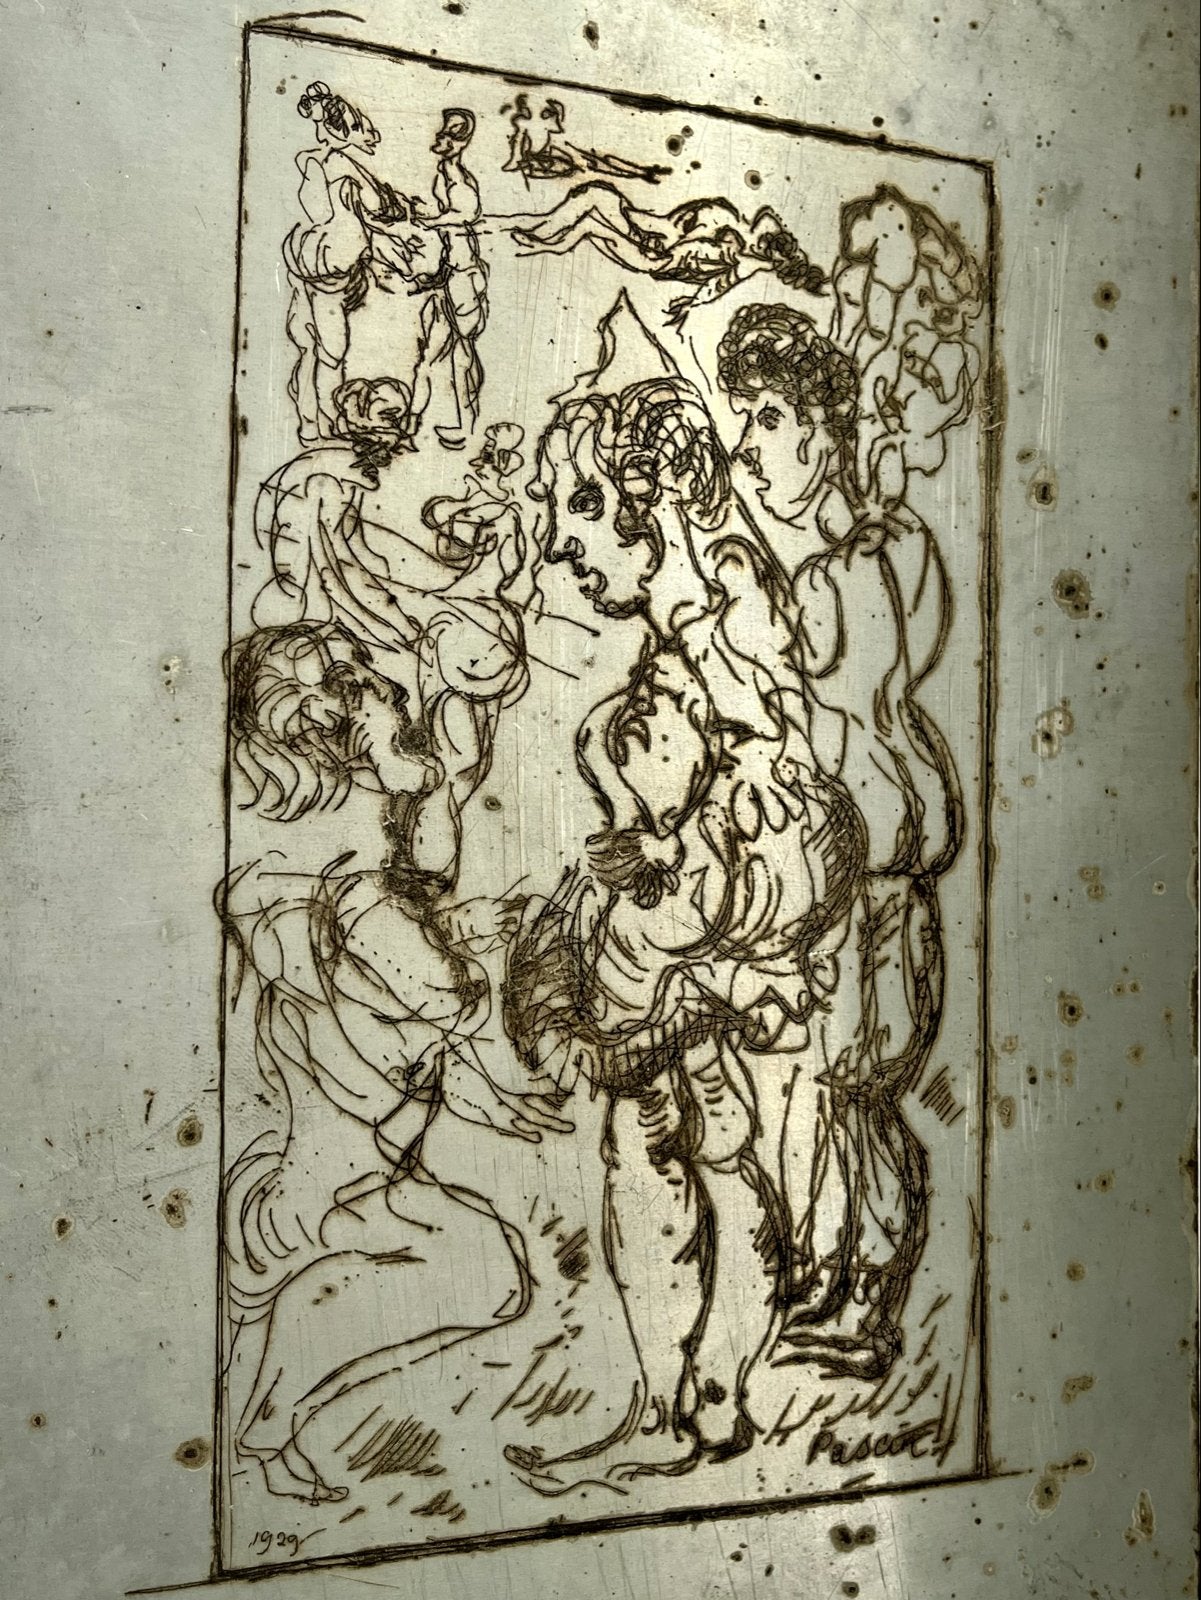 Pascin
1929